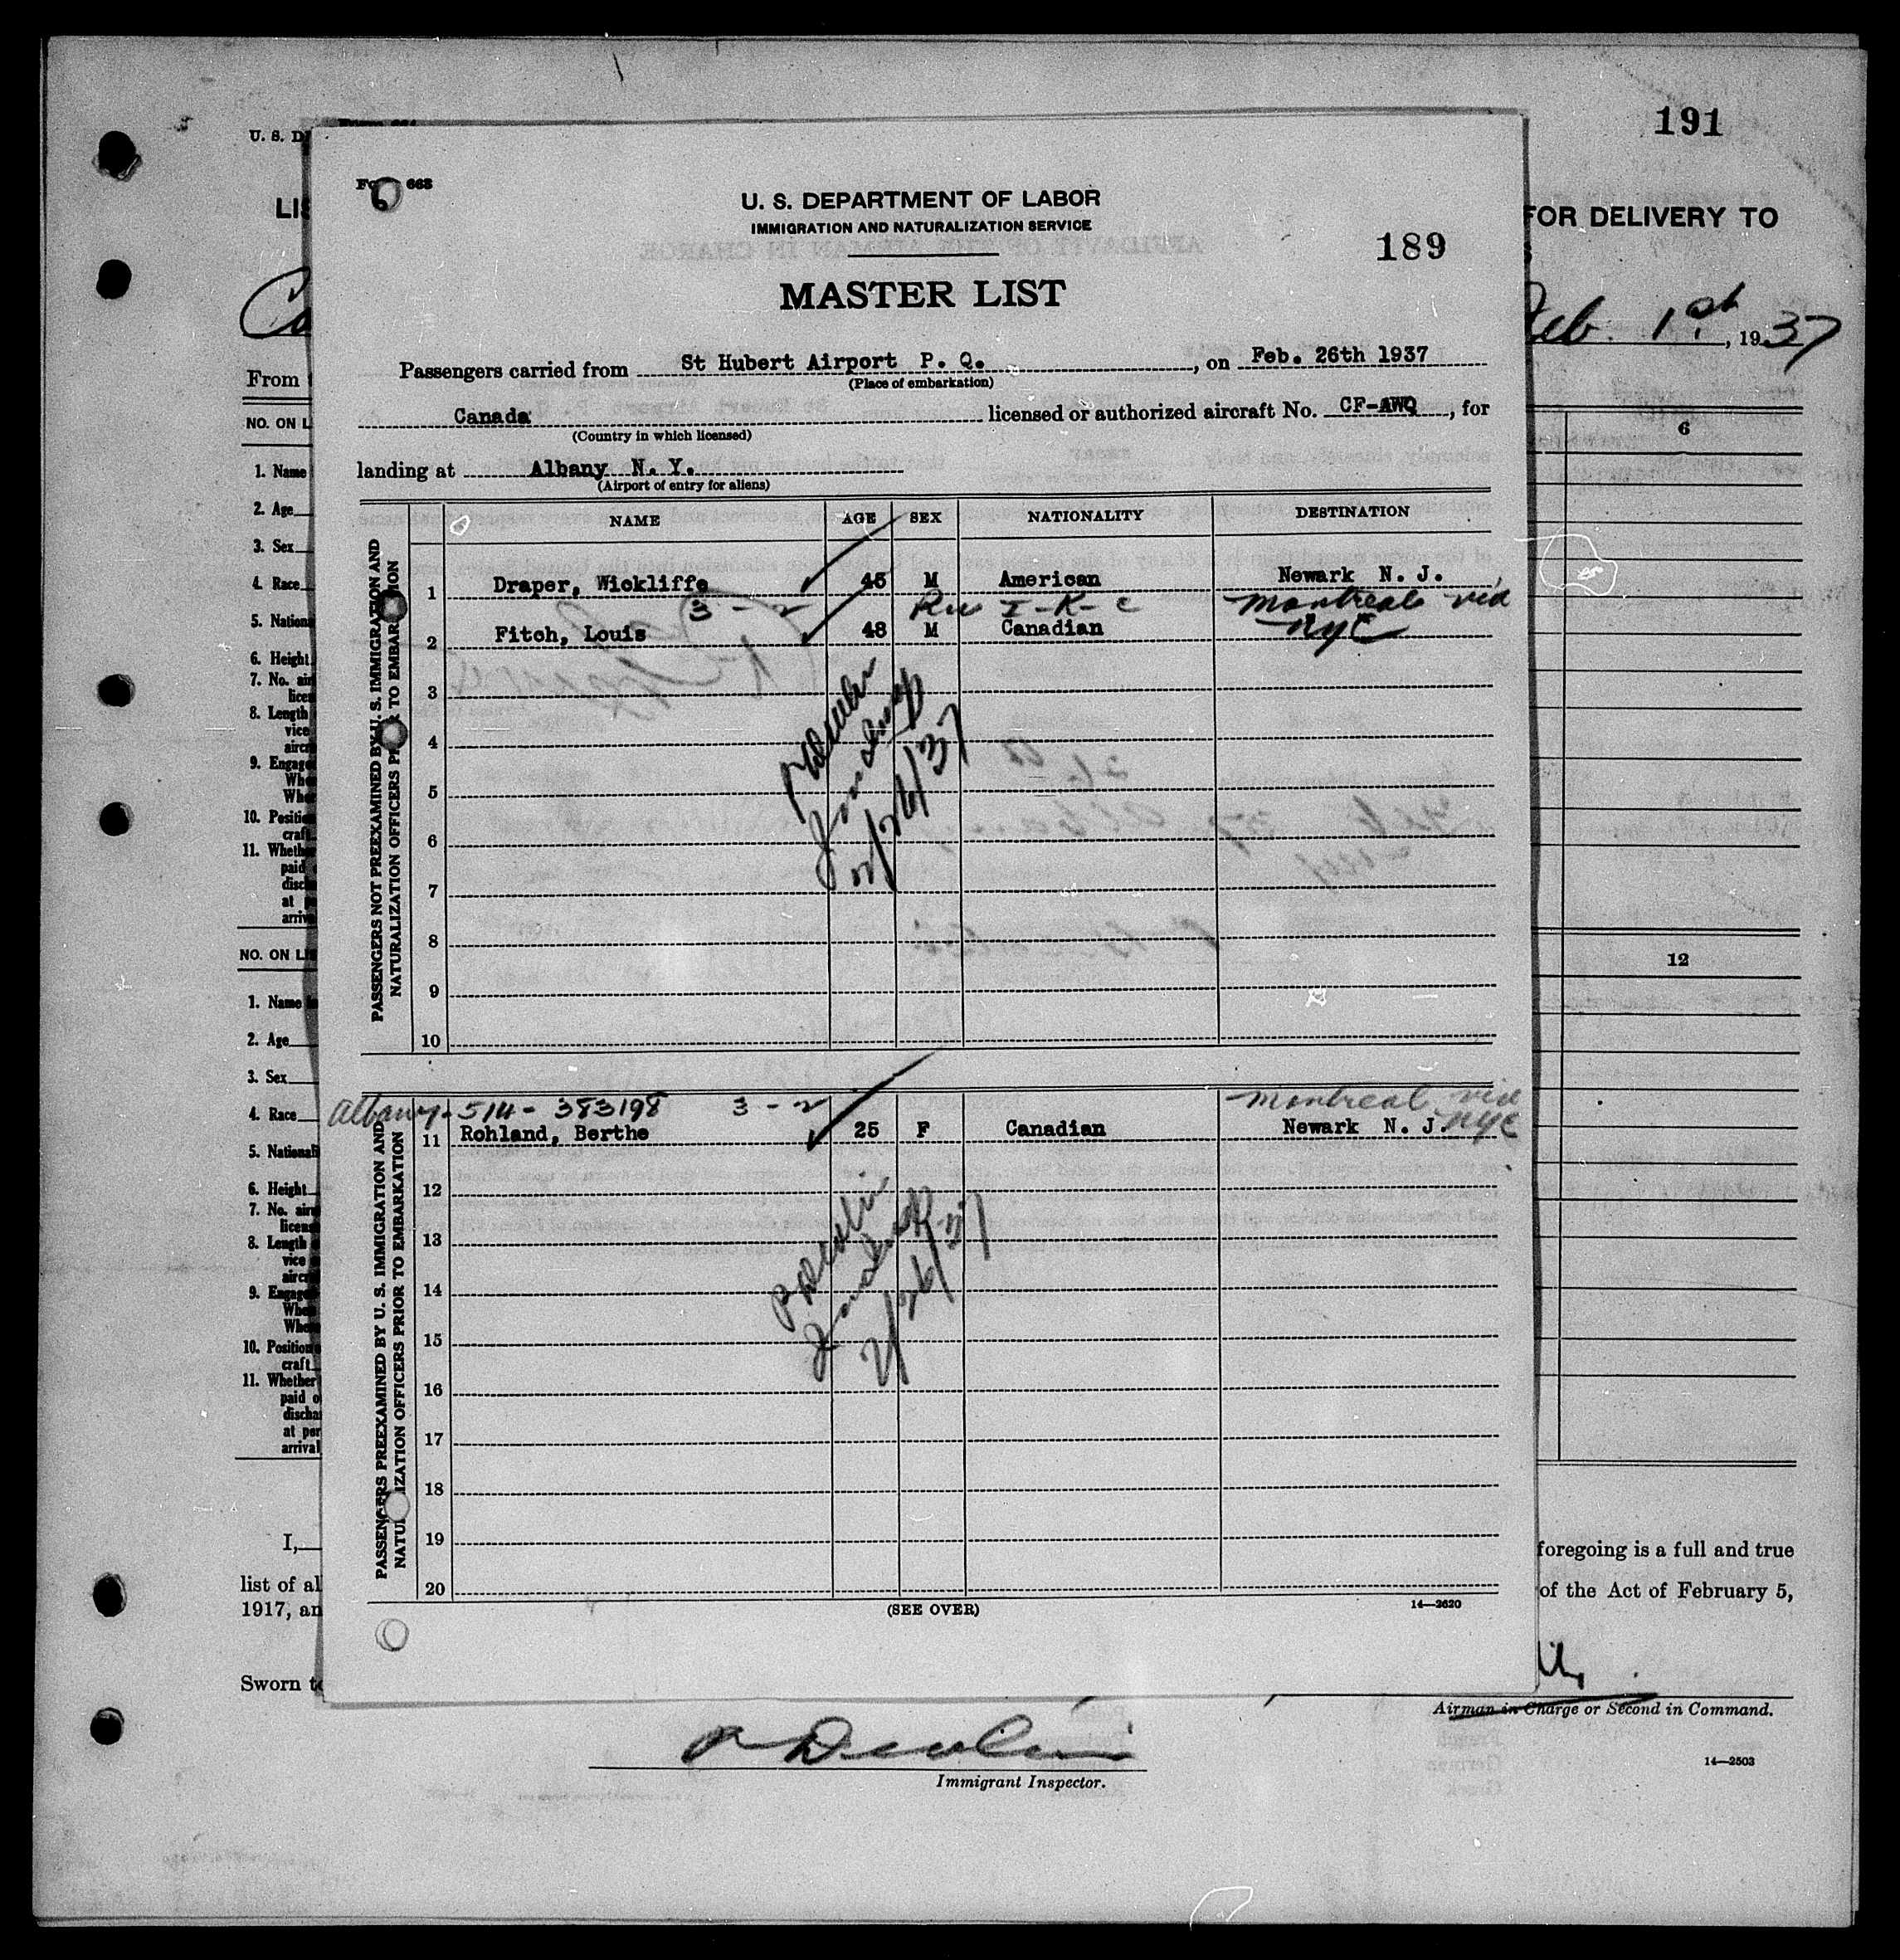 191
U. S. D
LI
FOR DELIVERY TO
Feb. 1st, 1937
From
NO. ON L
6
1. Name
2. Age
3. Sex
4. Race
5. Nation
6. Height
7. No. air
licen
8. Length
vice
aircr
9. Engage
Whe
Whe
10. Positio
craft
11. Whethe
paid
disch
at p
arriv
NO. ON LI
12
1. Name
2. Age
3. Sex
4. Race
5. National
6. Height
7. No. air
licens
8. Length
vice
aircr
9. Engage
Whe
Whe
10. Position
craft
11. Whether
paid o
discha
at por
arrival
I,
foregoing is a full and true
list of al
of the Act of February 5,
1917, an
Sworn to
Airman in Charge or Second in Command.
Immigrant Inspector.
14—2503
668
U. S. DEPARTMENT OF LABOR
IMMIGRATION AND NATURALIZATION SERVICE
189
MASTER LIST
Passengers carried from St Hubert Airport P. Q., on Feb. 26th 1937
(Place of embarkation)
Canada licensed or authorized aircraft No. CF-AWQ, for
(Country in which licensed)
landing at Albany N. Y.
(Airport of entry for aliens)
NAME AGE SEX NATIONALITY DESTINATION
PASSENGERS NOT PREEXAMINED BY U. S. IMMIGRATION AND
NATURALIZATION OFFICERS PRIOR TO EMBARKATION
1 Draper, Wickliffe 45 M American Newark N. J.
3-2 I-K-C Montreal via
2 Fitch, Louis 48 M Canadian NYC
3
4
5
6
7
8
9
10
2/26/37
PASSENGERS PREEXAMINED BY U. S. IMMIGRATION AND
NATURALIZATION OFFICERS PRIOR TO EMBARKATION
Albany-514-383198 3-2 Montreal via
11 Rohland, Berthe 25 F Canadian Newark N. J. NYC
12
13
14
15
16
17
18
19
20
2/26/37
(SEE OVER)
14—2620